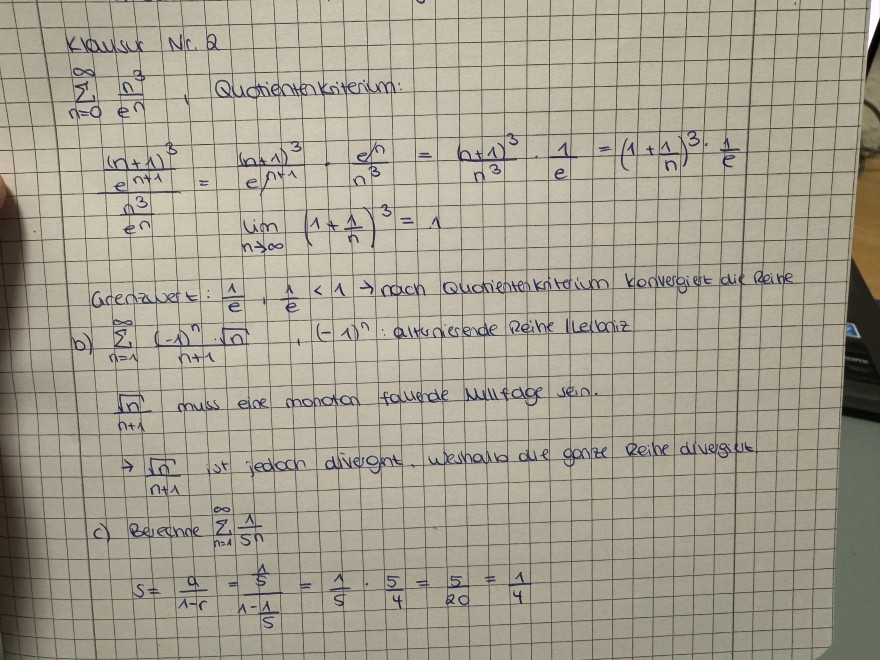 Klausur Nr. 2
∞ Σ n=0 n³/eⁿ , Quotientenkriterium:
((n+1)³/e^(n+1))/(n³/eⁿ) = (n+1)³/e^(n+1) · eⁿ/n³ = (n+1)³/n³ · 1/e = (1 + 1/n)³ · 1/e
lim n→∞ (1 + 1/n)³ = 1
Grenzwert: 1/e , 1/e < 1 → nach Quotientenkriterium konvergiert die Reihe
b) ∞ Σ n=1 (-1)ⁿ·√n/(n+1) , (-1)ⁿ: alternierende Reihe Leibniz
√n/(n+1) muss eine monoton fallende Nullfolge sein.
→ √n/(n+1) ist jedoch divergent, weshalb die ganze Reihe divergiert
c) Berechne ∞ Σ n=1 1/5ⁿ
S = a/(1-r) = (1/5)/(1-1/5) = 1/5 · 5/4 = 5/20 = 1/4